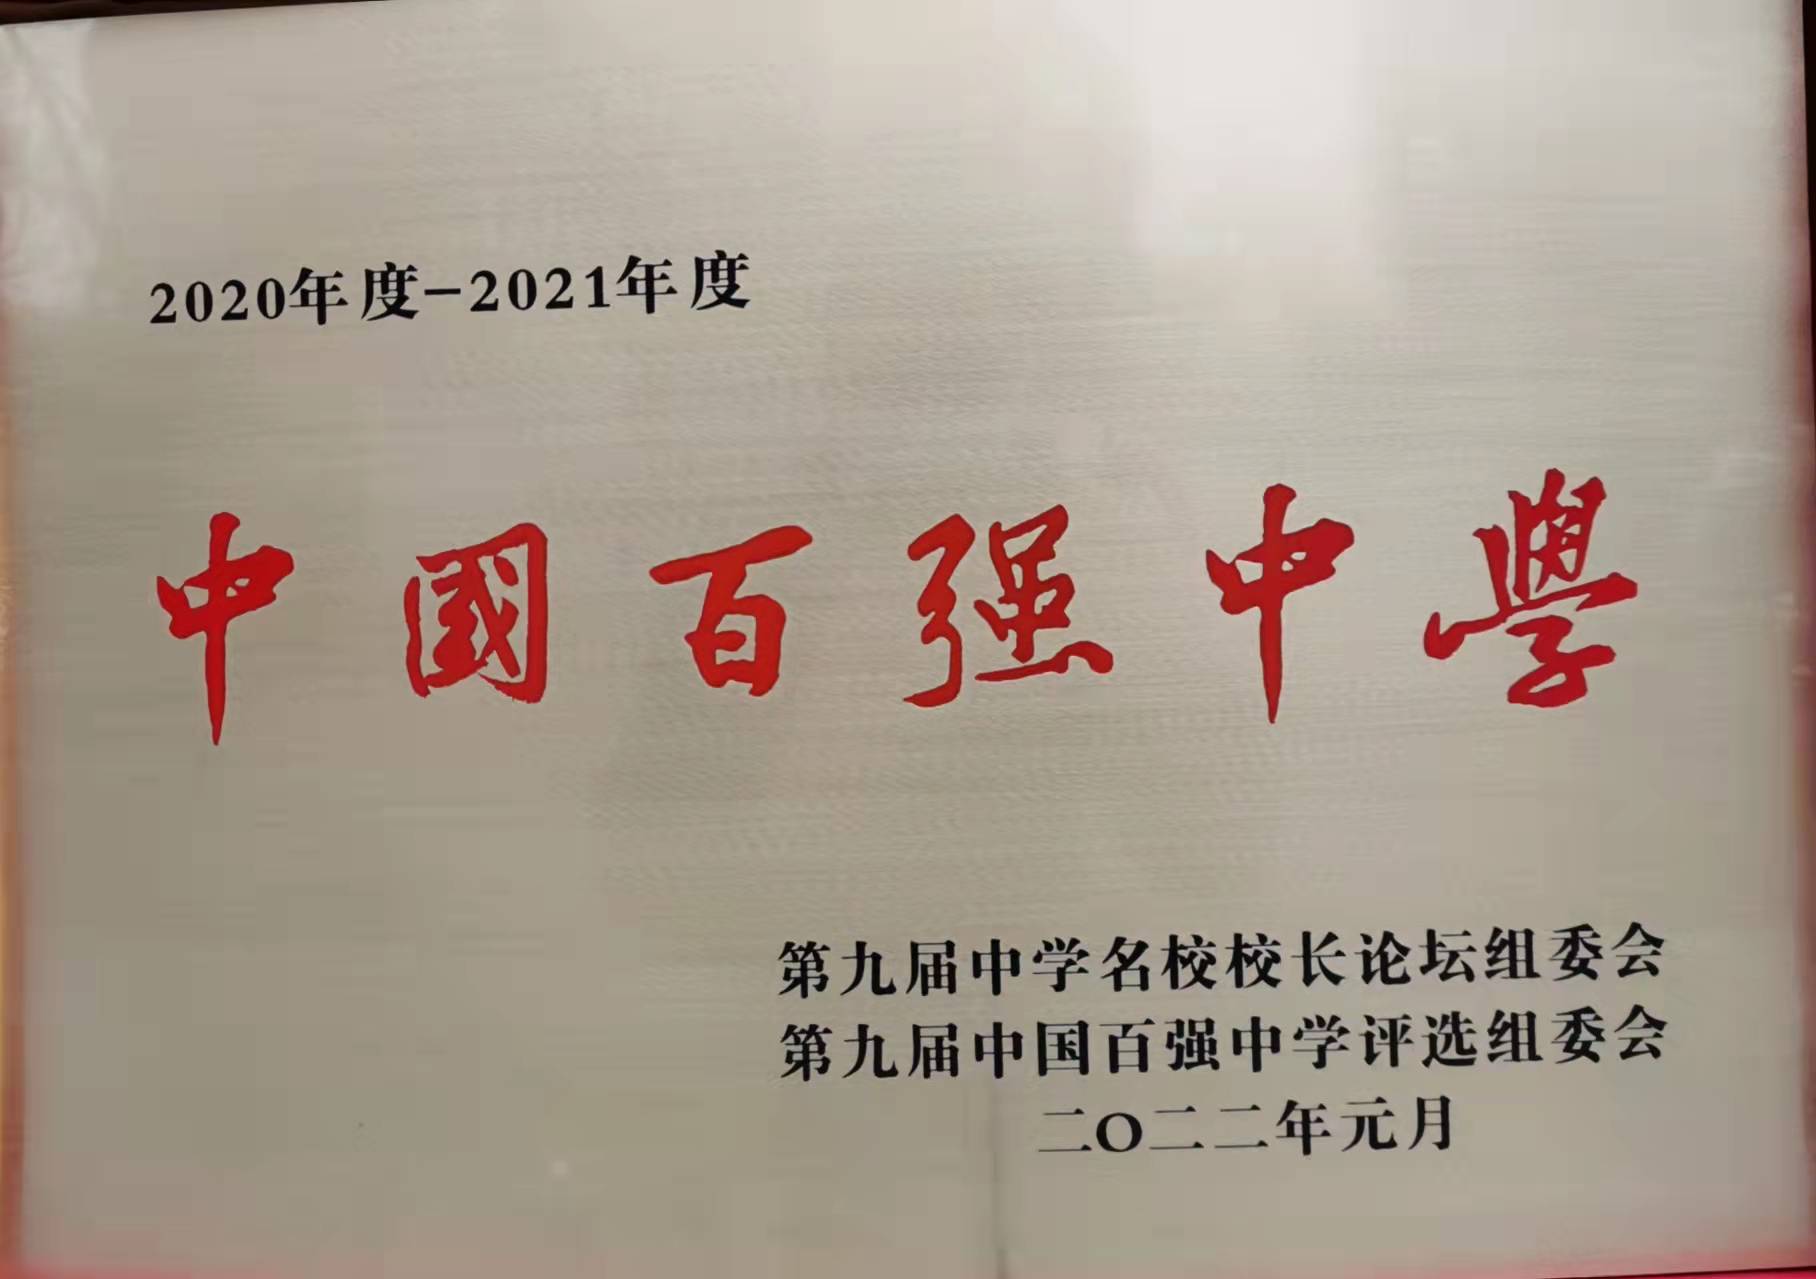 2020年度-2021年度
中國百强中學
第九届中学名校校长论坛组委会
第九届中国百强中学评选组委会
二〇二二年元月